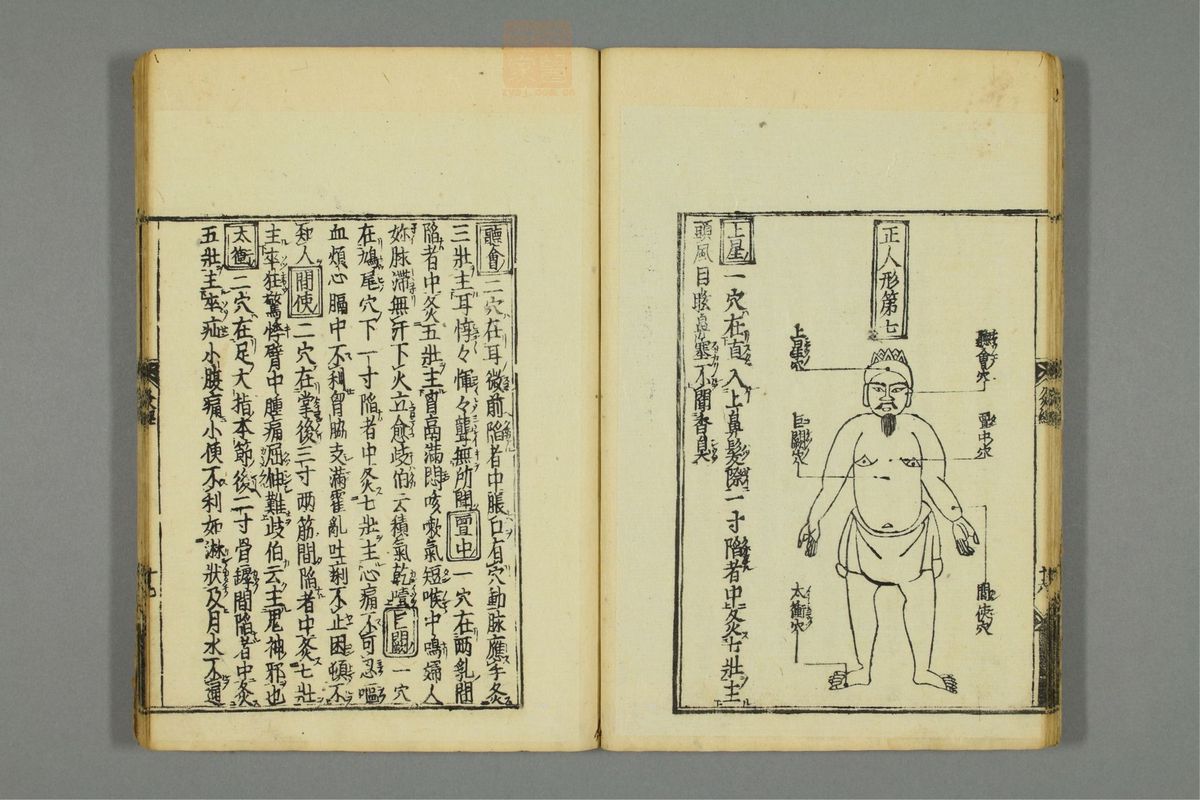 正人形第七
聽會穴
上星穴
膻中穴
巨闕穴
間使穴
太衝穴
上星一穴在直入上鼻髮際一寸陷者中灸七壯主
頭風目眩鼻塞不聞香臭
聽會二穴在耳微前陷者中張口有穴動脉應手灸
三壯主耳悖々惲々聾無所聞亶中一穴在兩乳間
陷者中灸五壯主胷鬲滿悶咳嗽氣短喉中鳴婦人
妳脉滞無汗下火立愈歧伯云積氣乾噎巨闕一穴
在鳩尾穴下一寸陷者中灸七壯主心痛不可忍嘔
血煩心膈中不利胷脇支滿霍亂吐利不止困頓不
知人間使二穴在掌後三寸兩筋間陷者中灸七壯
主卒狂驚悸臂中腫痛屈伸難歧伯云主鬼神邪也
太衝二穴在足大指本節後二寸骨罅間陷者中灸
五壯主卒疝小腹痛小便不利如淋狀及月水不通